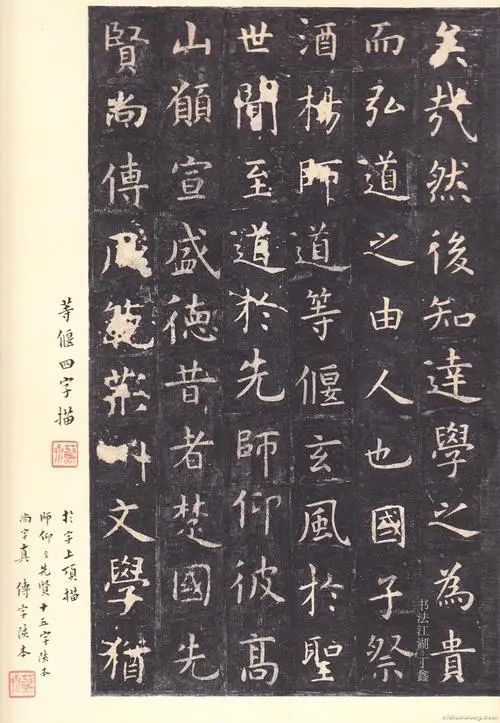 矣哉然後知達學之為貴
而弘道之由人也國子祭
酒楊師道等偃玄風於聖
世聞至道於先師仰彼高
山願宣盛德昔者楚國先
賢尚傳風範荊州文學猶
等偃四字描
於字上項描
師仰至先賢十五字陝本
尚字真 傳字陝本
书法江湖-丁鑫
cidianwang.com